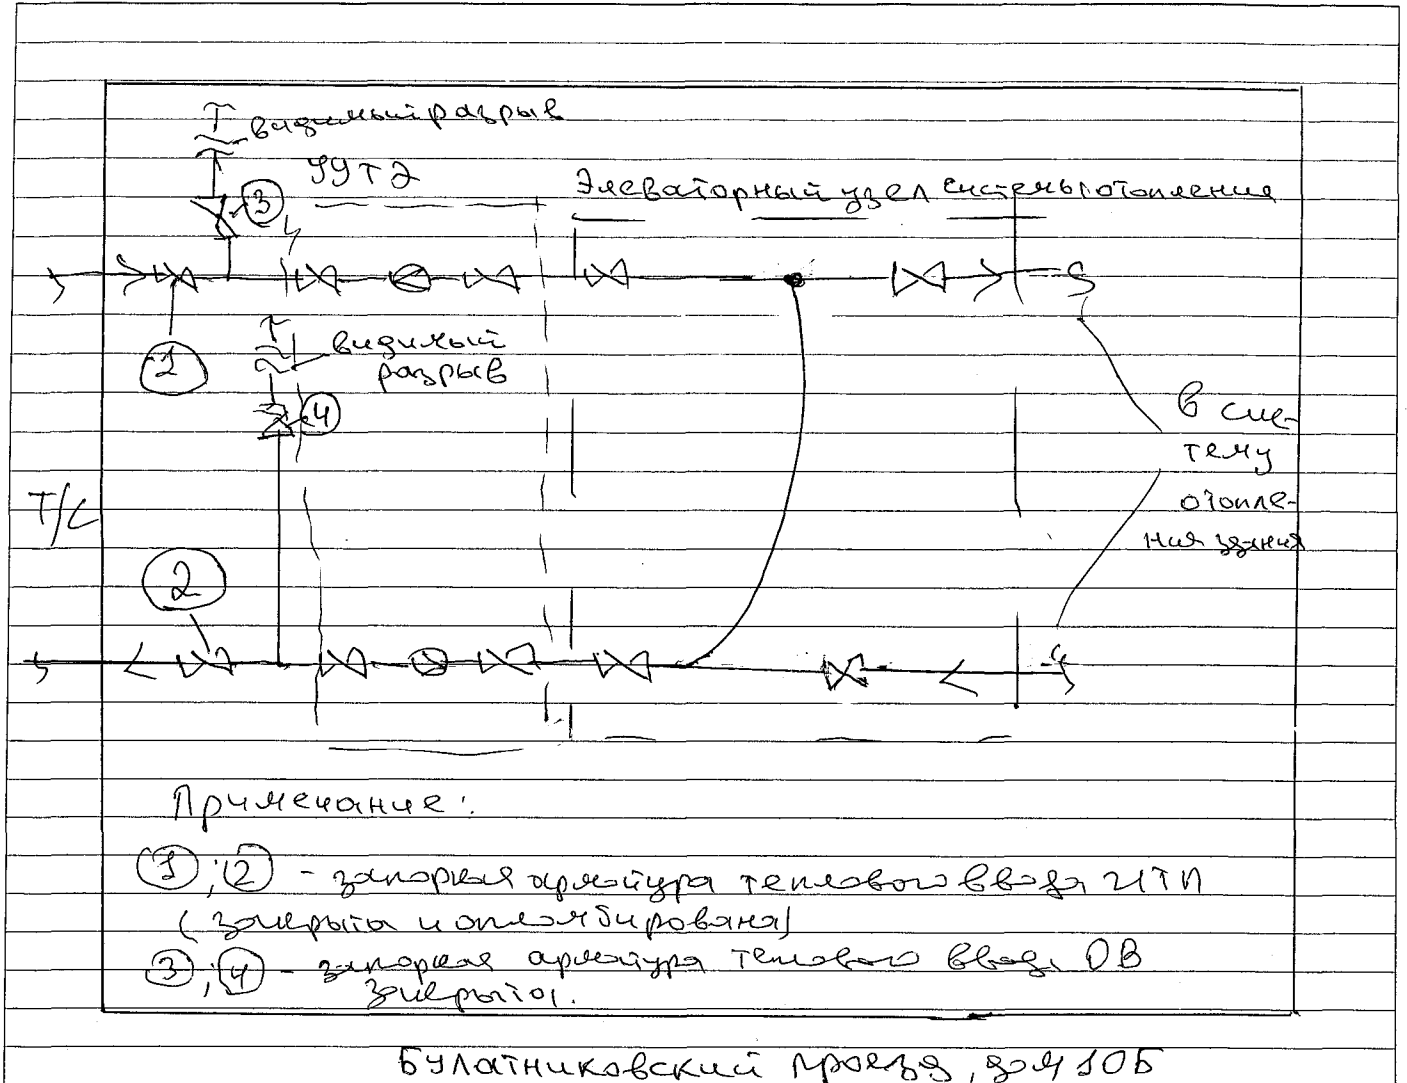 видимый разрыв
УУТЭ
Элеваторный узел системы отопления
3
1
видимый
разрыв
4
В сис-
тему
отопле-
ния здания
Т/С
2
Примечание:
1; 2 - запорная арматура теплового ввода ИТП
(закрыта и опломбирована)
3; 4 - запорная арматура теплового ввода ОВ
закрыты.
Булатниковский проезд, дом 10Б